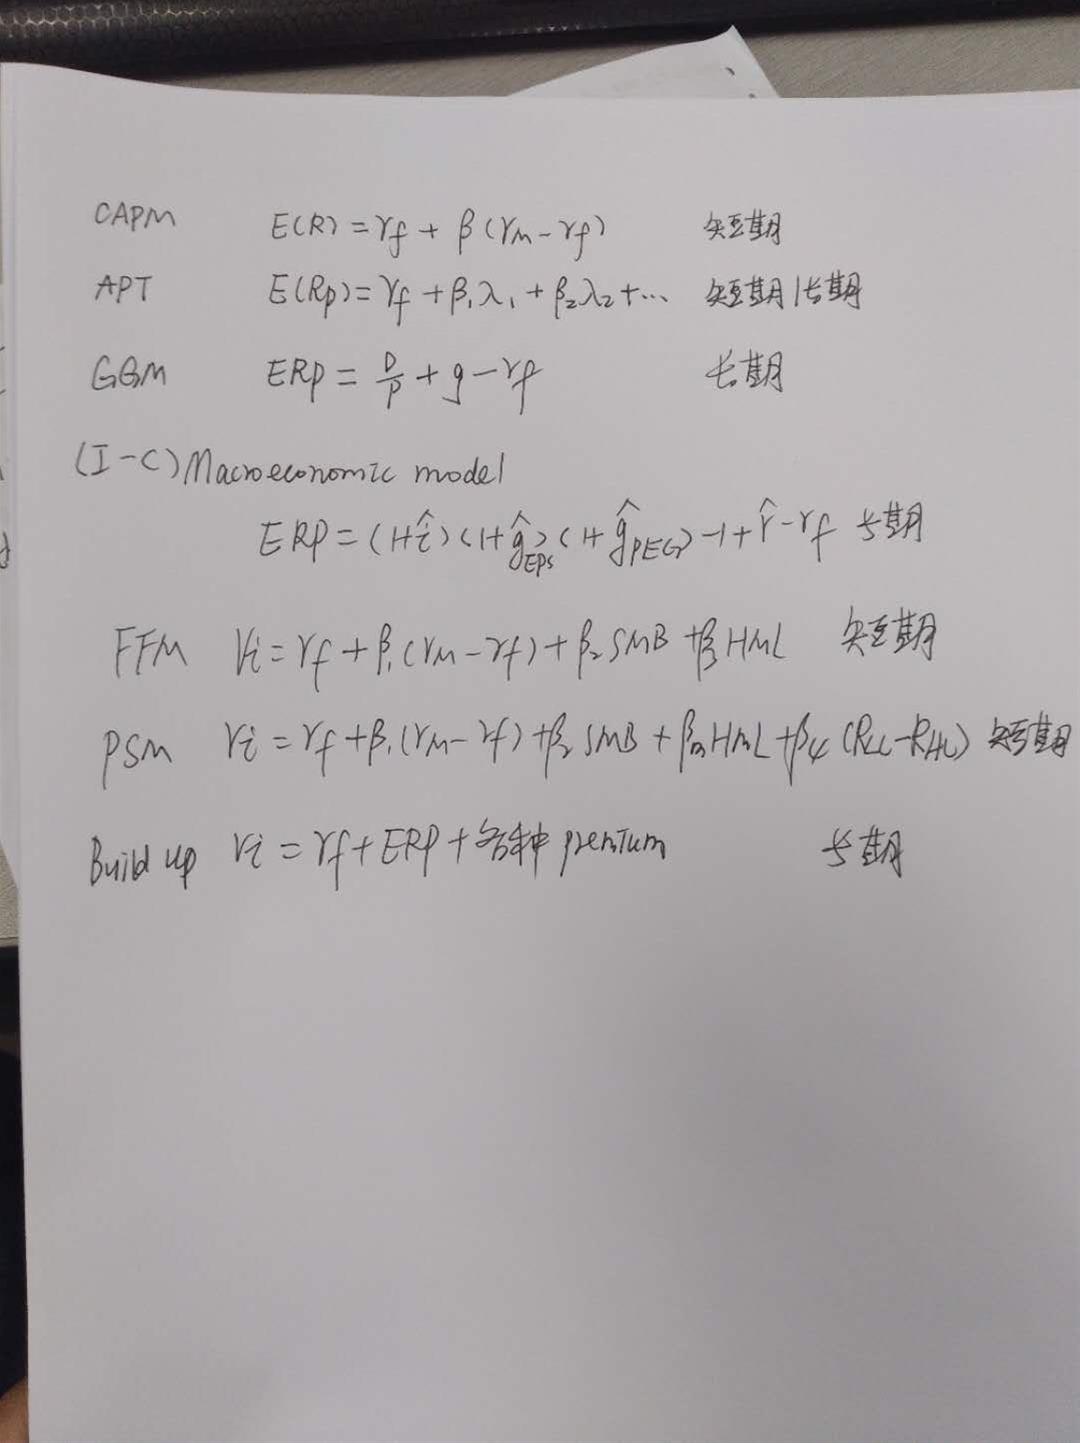 CAPM E(R) = rf + β(rm - rf) 短期
APT E(Rp) = rf + β₁λ₁ + β₂λ₂ + ... 短期/长期
GGM ERP = D/P + g - rf 长期
(I-C) Macroeconomic model
ERP = (1+î)(1+ĝEPS)(1+ĝPEG) - 1 + r̂ - rf 长期
FFM ri = rf + β₁(rm - rf) + β₂SMB + β₃HML 短期
PSM ri = rf + β₁(rm - rf) + β₂SMB + β₃HML + β₄(RLL - RHL) 短期
Build up ri = rf + ERP + 各种 premium 长期